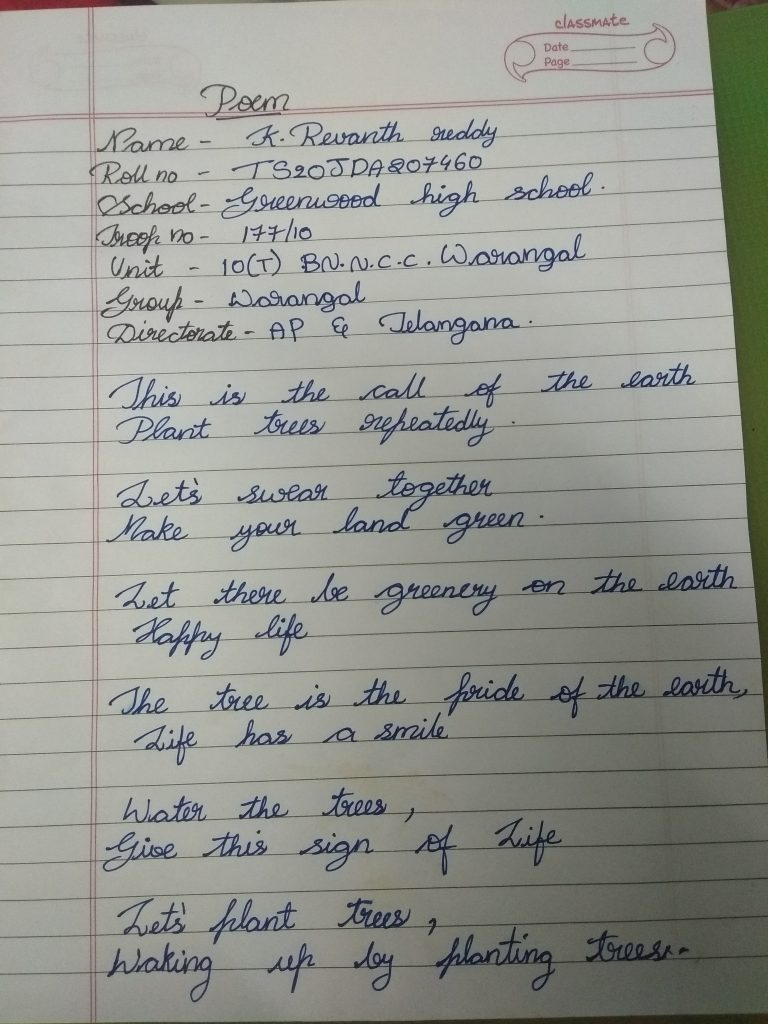 classmate
Date
Page
Poem
Name - K. Revanth reddy
Roll no - TS20JDA807460
School - Greenwood high school.
Troop no - 177/10
Unit - 10(T) BN.N.C.C. Warangal
Group - Warangal
Directorate - AP & Telangana.
This is the call of the earth
Plant trees repeatedly.
Let's swear together
Make your land green.
Let there be greenery on the earth
Happy life
The tree is the pride of the earth,
Life has a smile
Water the trees,
Give this sign of Life
Let's plant trees,
Waking up by planting trees.-